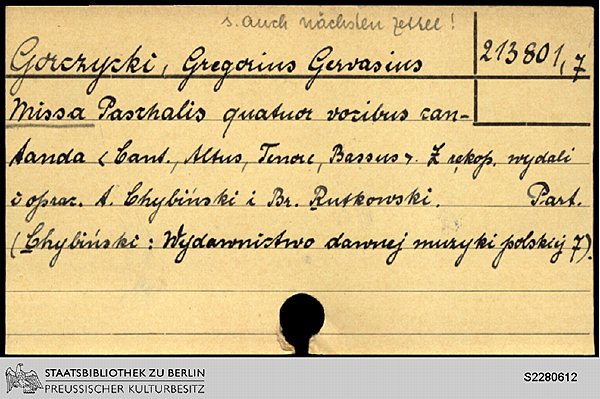 s. auch nächsten Zettel!
Gorczycki, Gregorius Gervasius
213801,7
Missa Paschalis quatuor vocibus can-
tanda <Cant., Altus, Tenore, Bassus>. Z rękop. wydali
i oprac. A. Chybiński i Br. Rutkowski. Part.
(Chybiński: Wydawnictwo dawnej muzyki polskiej 7).
STAATSBIBLIOTHEK ZU BERLIN
PREUSSISCHER KULTURBESITZ
S2280612